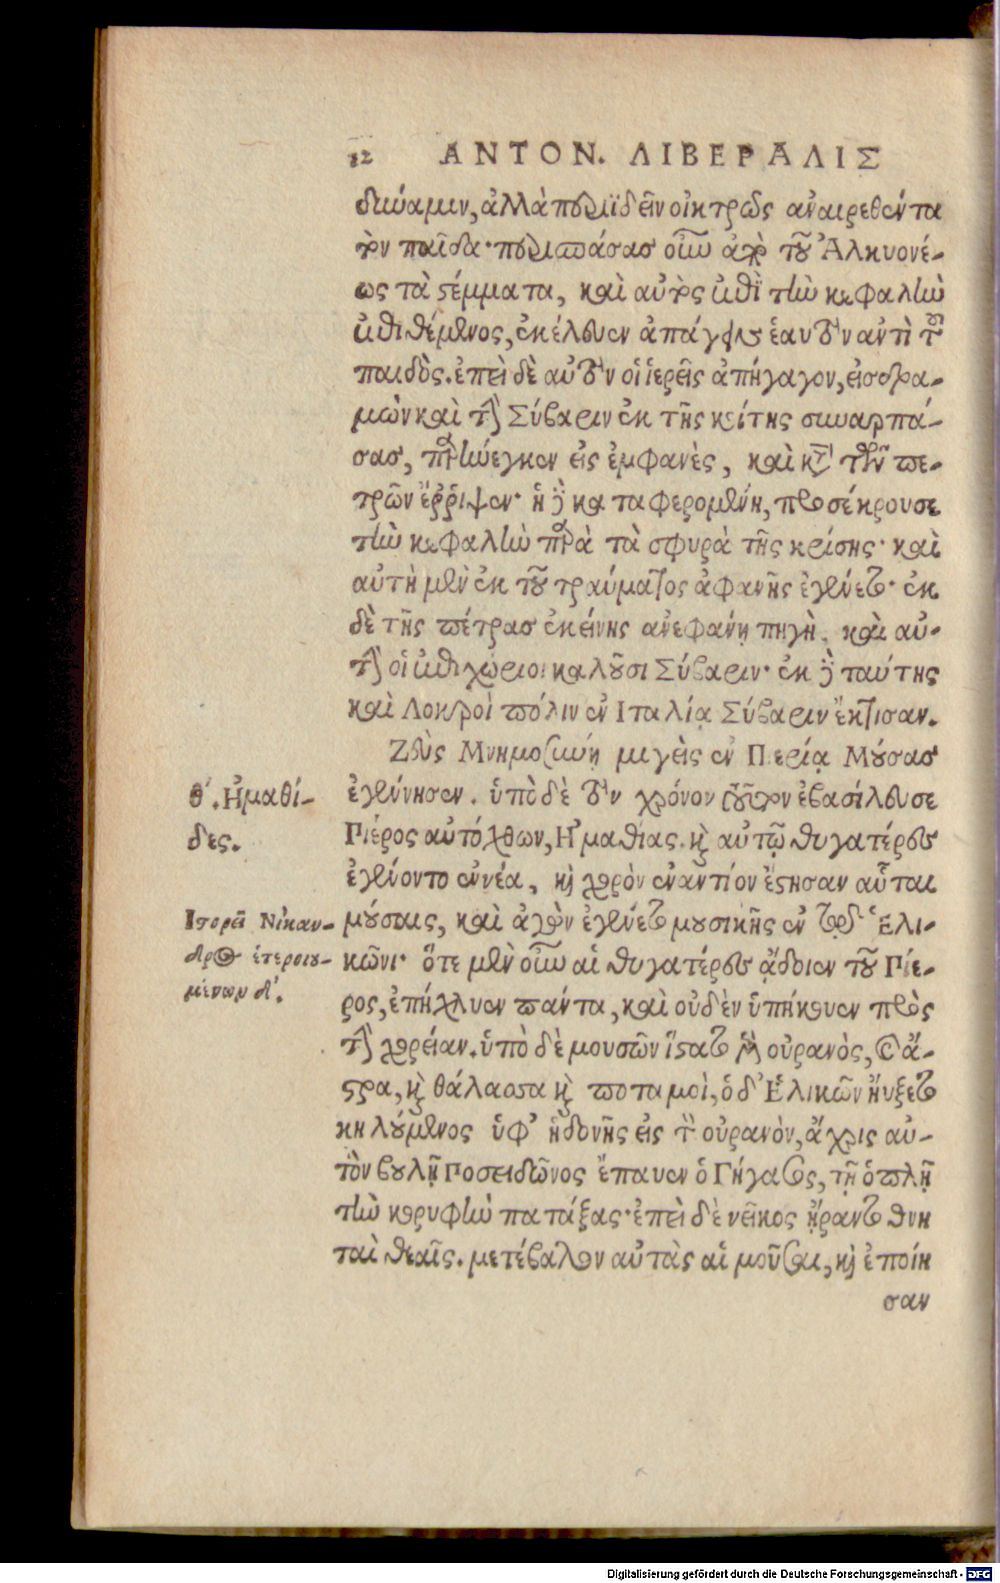 12 ΑΝΤΟΝ. ΛΙΒΕΡΑΛΙΣ
δύναμιν, ἀλλὰ περιϊδεῖν οἰκτρῶς ἀναιρεθέντα
τὸν παῖδα· περισπάσας οὖν ἀπὸ τοῦ Ἀλκυονέ-
ως τὰ στέμματα, καὶ αὐτὸς ἐπὶ τὴν κεφαλὴν
ἐπιθέμενος, ἐκέλευεν ἀπάγειν ἑαυτὸν ἀντὶ τοῦ
παιδὸς. ἐπεὶ δὲ αὐτὸν οἱ ἱερεῖς ἀπήγαγον, εἰσδρα-
μὼν καὶ τὴν Σύβαριν ἐκ τῆς κοίτης συναρπά-
σας, παρήνεγκεν εἰς ἐμφανὲς, καὶ κατὰ τῶν πε-
τρῶν ἔῤῥιψεν· ἡ δὲ καταφερομένη, προσέκρουσε
τὴν κεφαλὴν παρὰ τὰ σφυρὰ τῆς κρίσης· καὶ
αὐτὴ μὲν ἐκ τοῦ τραύματος ἀφανὴς ἐγένετο· ἐκ
δὲ τῆς πέτρας ἐκείνης ἀνεφάνη πηγὴ. καὶ αὐ-
τὴν οἱ ἐπιχώριοι καλοῦσι Σύβαριν· ἐκ δὲ ταύτης
καὶ Λοκροὶ πόλιν ἐν Ιταλίᾳ Σύβαριν ἔκτισαν.
Ζεὺς Μνημοσύνῃ μιγεὶς ἐν Πιερίᾳ Μούσας
θ'. Ἠμαθί- ἐγέννησεν. ὑπὸ δὲ τὸν χρόνον τοῦτον ἐβασίλευσε
δες. Πιέρος αὐτόχθων, Ἠμαθίας. καὶ αὐτῷ θυγατέρες
ἐγένοντο ἐννέα, καὶ χορὸν ἐναντίον ἔστησαν αὗται
Ιστορεῖ Νίκαν- μούσαις, καὶ ἀγὼν ἐγένετο μουσικῆς ἐν τῷ Ἑλι-
δρος ἑτεροιου- κῶνι· ὅτε μὲν οὖν αἱ θυγατέρες ᾄδοιεν τοῦ Πίε-
μένων δ'. ρος, ἐπήχλυεν πάντα, καὶ οὐδὲν ὑπήκουεν πρὸς
τὴν χορείαν. ὑπὸ δὲ μουσῶν ἵστατο μὲν οὐρανὸς, καὶ ἄ-
στρα, καὶ θάλασσα καὶ ποταμοὶ, ὁ δ' Ἑλικῶν ἤυξετο
κηλούμενος ὑφ' ἡδονῆς εἰς τὸν οὐρανὸν, ἄχρις αὐ-
τὸν βουλῇ Ποσειδῶνος ἔπαυεν ὁ Πήγασος, τῇ ὁπλῇ
τὴν κορυφὴν πατάξας· ἐπεὶ δὲ νεῖκος ἤραντο θνη
ταὶ θεαῖς. μετέβαλον αὐτὰς αἱ μοῦσαι, καὶ ἐποίη
σαν
Digitalisierung gefördert durch die Deutsche Forschungsgemeinschaft - DFG